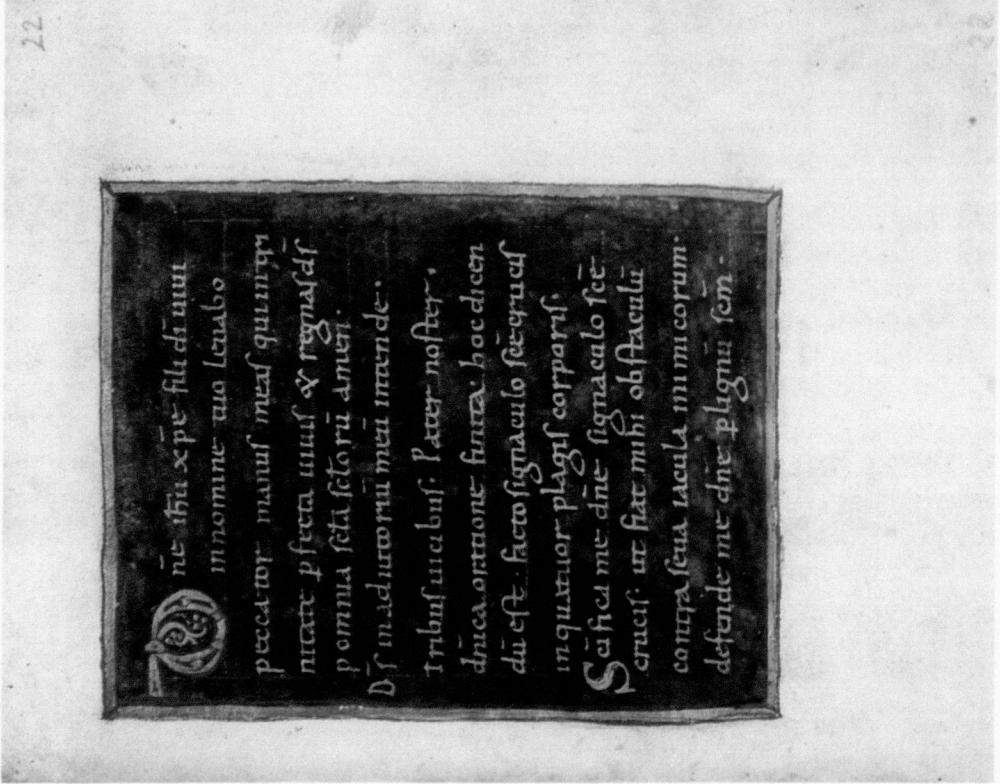 22
Dn̄e ih̄u xp̄e fili dī uiui
in nomine tuo leuabo
peccator manus meas qui in tri
nitate p̱fecta uiuis & regnas ds̄
p̱ omnia scl̄a scl̄orū amen.
Ds̄ in adiutoriū meū intende.
Tribus uicibus. Pater noster.
dn̄ica oratione finita. hoc dicen
dū est. facto signaculo scē crucis
in quattuor plagis corporis.
Scīfica me dn̄e signaculo scē
crucis. ut fiat mihi obstaculū
contra seua iacula inimicorum.
defende me dn̄e p̱ lignū scm̄.